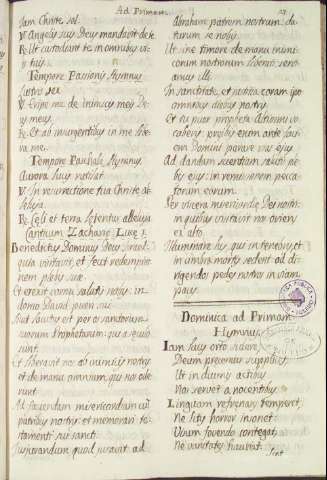 Ad Primam.
Iam Christe sol.
V Angelis suis Deus mandavit de te.
R Ut custodiant te in omnibus vijs tuis.
Tempore Passionis Hymnus
V Eripe me de inimicis meis Deus meus.
R Et ab insurgentibus in me libera me.
Tempore Paschale Hymnus.
Aurora lucis rutilat
V In resurrectione tua Christe alleluya
R Celi et terra letentur alleluya
Canticum Zacharie Luce 1.
Benedictus Dominus Deus Israel
quia visitavit, et fecit redemptionem
plebis sue.
Et erexit cornu salutis nobis: in
domo David pueri sui
Sicut locutus est per os sanctorum:
qui a seculo
sunt
Et liberavit nos ab inimicis nostris
et de manu omnium, qui nos oderunt
Ad faciendam misericordiam cum
patribus nostris: et memorari testamenti
sui sancti.
Iusjurandum quod iuravit ad
Abraham patrem nostrum: daturum
se nobis.
Ut sine timore de manu inimicorum
nostrorum liberati: serviamus
illi.
In sanctitate, et justitia coram ipso:
omnibus diebus nostris.
Et tu puer propheta Altissimi vocaberis:
preibis enim ante faciem
Domini parare vias ejus
Ad dandam scientiam salutis plebi
ejus: in remissionem peccatorum
eorum.
Per viscera misericordie Dei nostri:
in quibus visitavit nos oriens
ex alto.
Illuminare his, qui in tenebris, et
in umbra mortis sedent: ad dirigendos
pedes nostros in viam
pacis.
Dominica ad Primam
Hymnus.
Iam lucis orto sidere
Deum precemur supplices
Ut in diurnis actibus
Nos servet a nocentibus
Linguam refrenans temperet,
Ne litis horror insonet
Visum fovendo contegat,
Ne vanitates hauriat.
Sint